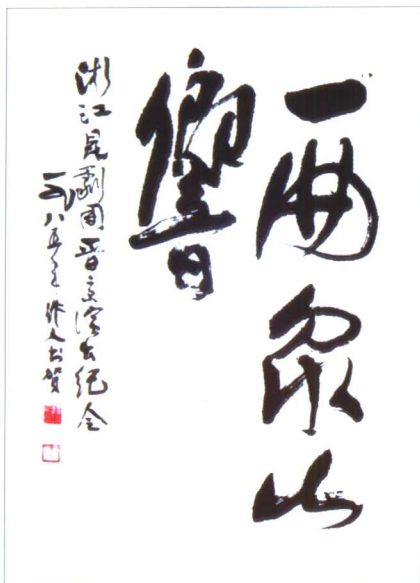 一曲眾山
響
浙江昆劇团晋京演出纪念
一九八五年 作人书贺